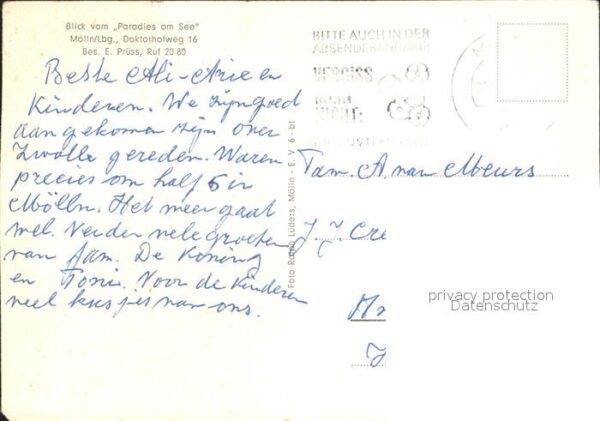 Blick vom „Paradies am See"
Mölln/Lbg., Doktorhofweg 16
Bes. E. Prüss, Ruf 20 80
Beste Ali-Arie en
Kinderen. We zijn goed
aangekomen zijn over
Zwolle gereden. Waren
precies om half 6 in
Mölln. Het meer gaat
wel. Verder vele groeten
van fam. De Koning
en Toni. Voor de Kinderen
veel kusjes van ons.
Foto Ralph Lüders, Mölln - E. V 6 - bt
BITTE AUCH IN DER
ABSENDERANGABE:
VERGISS
MEIN
NICHT:
Fam. A. van Meurs
J. J. Cre
privacy protection
Datenschutz